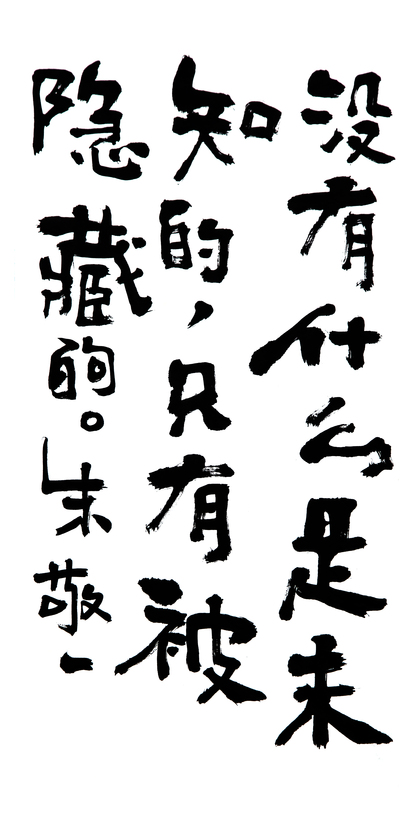 没有什么是未
知的，只有被
隐藏的。朱敬一